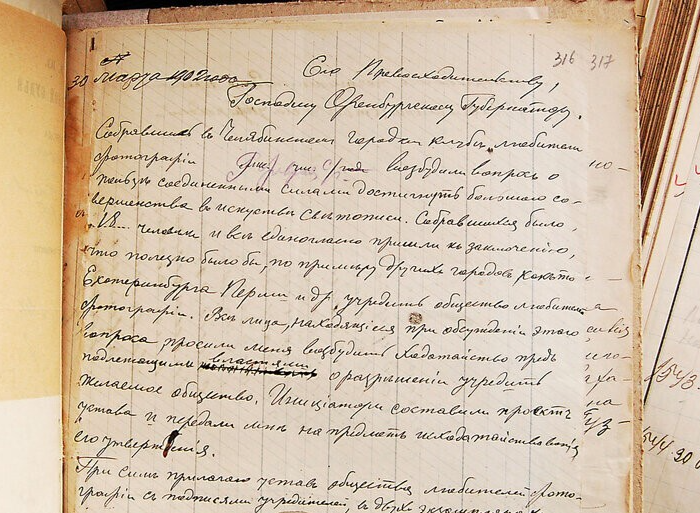 316 317
30 Марта 1902 года
Его Превосходительству,
Господину Оренбургскому Губернатору.
Собравшись въ Челябинскомъ городскомъ клубѣ, любители
фотографіи возбудили вопросъ о
пользѣ соединенными силами достигнуть большаго со-
вершенства въ искуствѣ свѣтописи. Собравшихся было
18 человѣкъ и всѣ единогласно пришли къ заключенію,
что полезно было бы, по примѣру другихъ городовъ какъ то
Екатеринбурга Перми и др, учредить общество любителей
фотографіи. Всѣ лица, находящіеся при обсужденіи этого
вопроса, просили меня возбудить ходатайство предъ
подлежащими властями о разрѣшеніи учредить
желаемое общество. Иниціаторы составили проэктъ
устава и передали мнѣ на предметъ исходатайствованія
его утвержденія.
При семъ прилагаю уставъ общества любителей фото-
графіи съ подписями учредителей, въ двухъ экземплярахъ